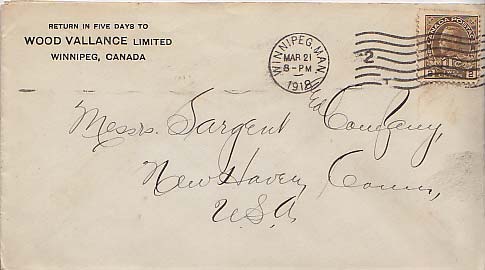 RETURN IN FIVE DAYS TO
WOOD VALLANCE LIMITED
WINNIPEG, CANADA
WINNIPEG, MAN.
MAR 21
8-PM
1918
2
CANADA POSTAGE
Messrs. Sargent and Company,
New Haven, Conn,
U.S.A.